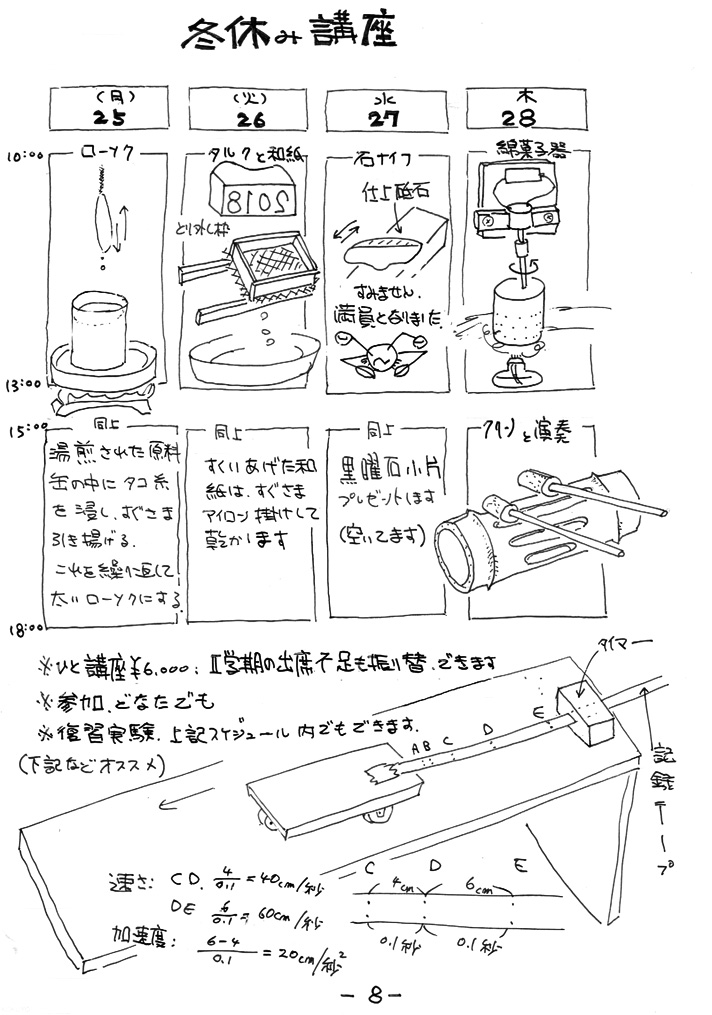 冬休み講座
(月)
25
(火)
26
水
27
木
28
10:00
ローソク
タルクと和紙
石ナイフ
綿菓子器
2018
とり外し枠
仕上砥石
すみません.
満員となりました
13:00
15:00
同上
湯煎された原料
缶の中にタコ糸
を浸し、すぐさま
引き揚げる.
これを繰り返して
太いローソクにする.
同上
すくいあげた和
紙は、すぐさま
アイロン掛けして
乾かします
同上
黒曜石小片
プレゼントします
(空いてます)
と演奏
18:00
※ひと講座¥6,000; Ⅱ学期の出席不足も振り替できます
※参加、どなたでも
※復習実験、上記スケジュール内でもできます.
(下記などオススメ)
タイマー
記録テープ
A B C D E
速さ: CD. 4/0.1 = 40cm/秒
DE 6/0.1 = 60cm/秒
加速度: 6-4/0.1 = 20cm/秒²
C D E
4cm 6cm
0.1秒 0.1秒
- 8 -